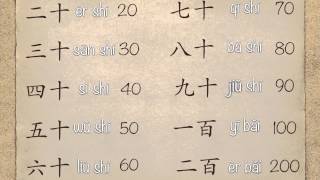 二十 èr shí 20 七十 qī shí 70
三十 sān shí 30 八十 bā shí 80
四十 sì shí 40 九十 jiǔ shí 90
五十 wǔ shí 50 一百 yì bǎi 100
六十 liù shí 60 二百 èr bǎi 200